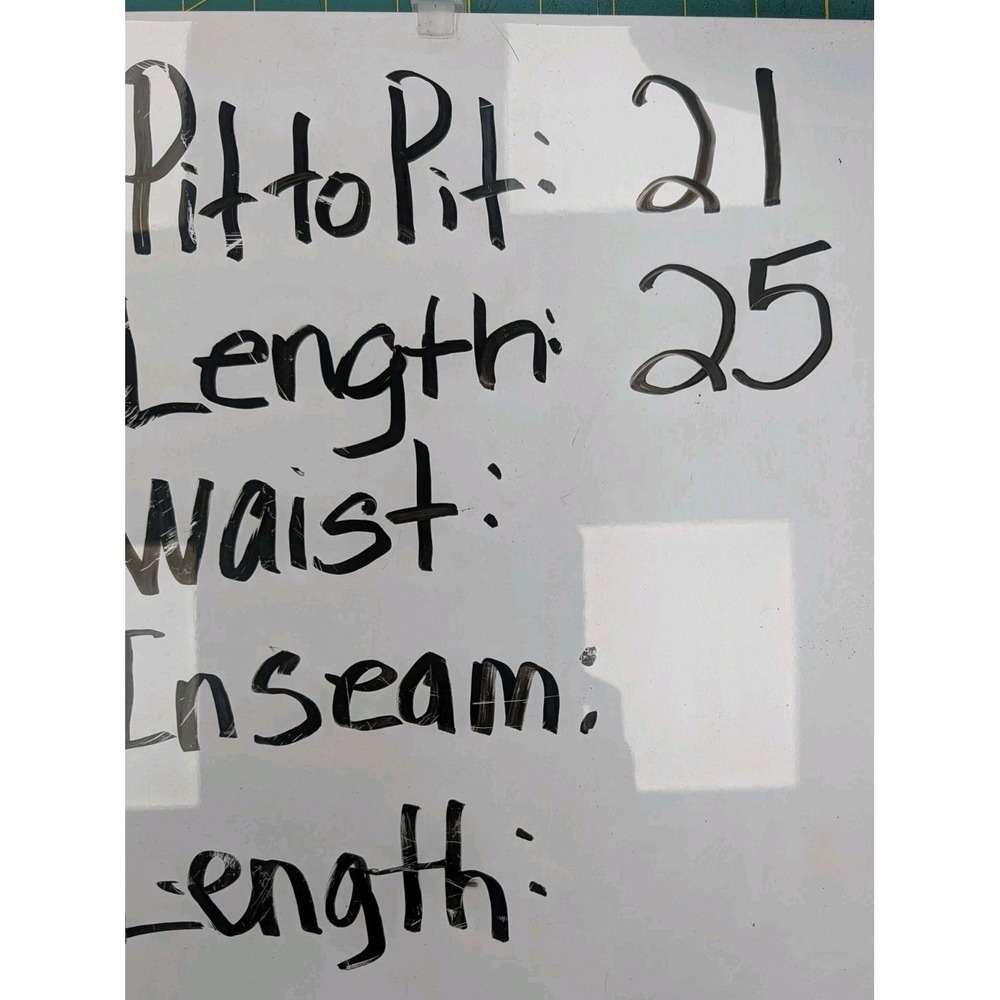 Pit to Pit: 21
Length: 25
Waist:
Inseam:
Length: